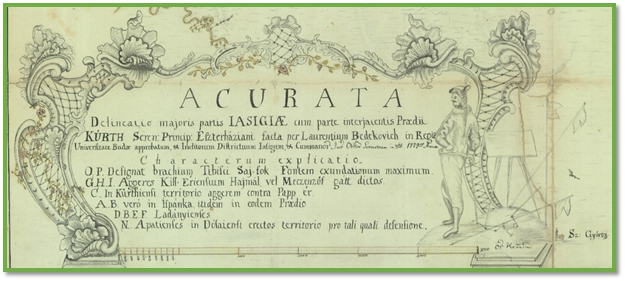 ACURATA
Delineatio majoris partis IASIGIÆ cum parte interjacentis Prædii
KÜRTH Seren: Princip: Eszterhaziani facta per Laurentium Bedekovich in Regia
Universitate Budæ approbatum, et Inclitorum Districtuum Iasigem, et Cumanor
Characterum explicatio.
O.P. Designat brachium Tibisci Saj-fok Fontem exundationum maximum.
G.H.I. Aggeres Kiss-Eriensium Hajnal vel Meczenzöf gatt dictos.
C. In Kürthiensi territorio aggerem contra Papp ér.
A.B. verò in Ispanka itidem in eodem Prædio
D.B.E.F Ladanyienses
N. Apatienses in Dosaiensi erectos territorio pro tali quali defensione.
Sz: György